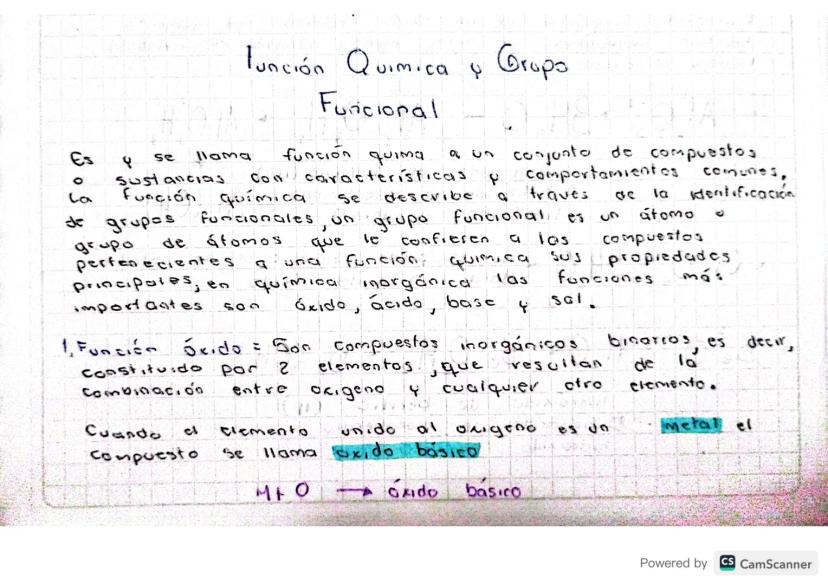 Función Química y Grupo
Funcional
Es y se llama función quima a un conjunto de compuestos
o sustancias con características y comportamientos comunes,
La función química se describe a través de la identificación
de grupos funcionales, un grupo funcional es un átomo o
grupo de átomos que le confieren a los compuestos
pertenecientes a una función química sus propiedades
principales, en química inorgánica las funciones más
importantes son óxido, ácido, base y sal.
1. Función óxido = Son compuestos inorgánicos binarios, es decir,
constituido por 2 elementos, que resultan de la
combinación entre oxigeno y cualquier otro elemento.
Cuando el elemento unido al oxigeno es un metal el
compuesto se llama oxido básico
M + O → óxido básico
Powered by CS CamScanner